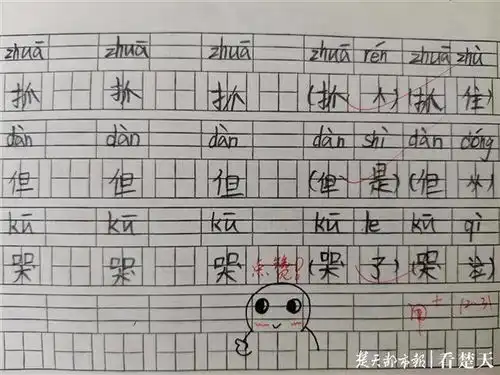 zhuā zhuā zhuā zhuā rén zhuā zhù
抓 抓 抓 (抓 )(抓 住)
dàn dàn dàn dàn shì dàn dóng
但 但 但 (但 是)(但 )
kū kū kū kū le kū qì
哭 哭 哭 点赞! (哭 了)(哭 泣)
甲+ 12-31
楚天都市报|看楚天